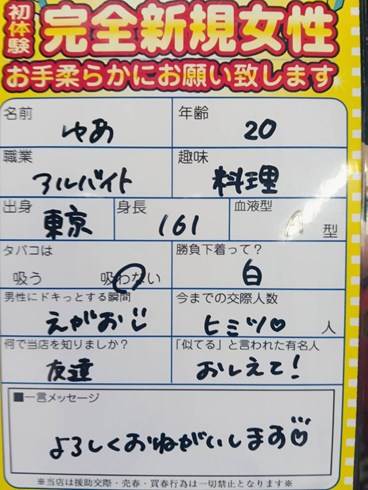 初体験 完全新規女性
お手柔らかにお願い致します
名前 ゆあ 年齢 20
職業 アルバイト 趣味 料理
出身 東京 身長 161 血液型 型
タバコは 吸う 吸わない 勝負下着って? 白
男性にドキっとする瞬間 えがお 今までの交際人数 ヒミツ♡ 人
何で当店を知りましたか? 友達 「似てる」と言われた有名人 おしえて!
■一言メッセージ
よろしくおねがいします
※当店は援助交際・売春・買春行為は一切禁止となります※